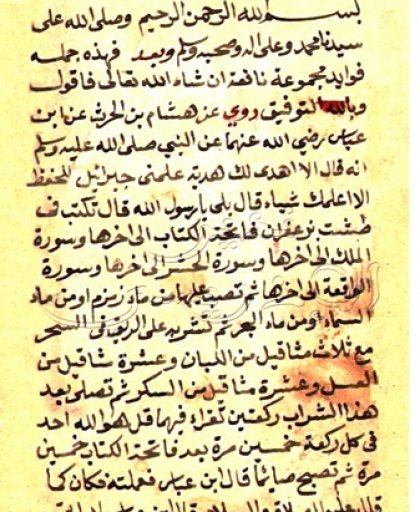 بسم الله الرحمن الرحيم وصلى الله على
سيدنا محمد وعلى اله وصحبه وسلم وبعد فهذه جمله
فوايد مجموعة نافعة ان شاء الله تعالى فاقول
وبالله التوفيق روي عن هشام بن الحرث عن ابن
عباس رضي الله عنهما عن النبي صلى الله عليه وسلم
انه قال الا اهدى لك هدية علمنى جبرائيل للحفظ
الا اعلمك شياء قال بلى يا رسول الله قال تكتب فى
طشت بزعفران فاتحة الكتاب الى اخرها وسورة
الملك الى اخرها وسورة الحشر الى اخرها وسورة
الواقعة الى اخرها ثم تصب عليها من ماء زمزم او من ماء
السماء او من ماء البحر ثم تشربه على الريق فى السحر
مع ثلاث مثاقيل من اللبان وعشرة مثاقيل من
العسل وعشرة مثاقيل من السكر ثم تصلى بعد
هذا الشراب ركعتين تقراء فيهما قل هو الله احد
فى كل ركعة خمسين مرة بعد فاتحة الكتاب خمسين
مرة ثم تصبح صايما قال ابن عباس فعملته فكان كما